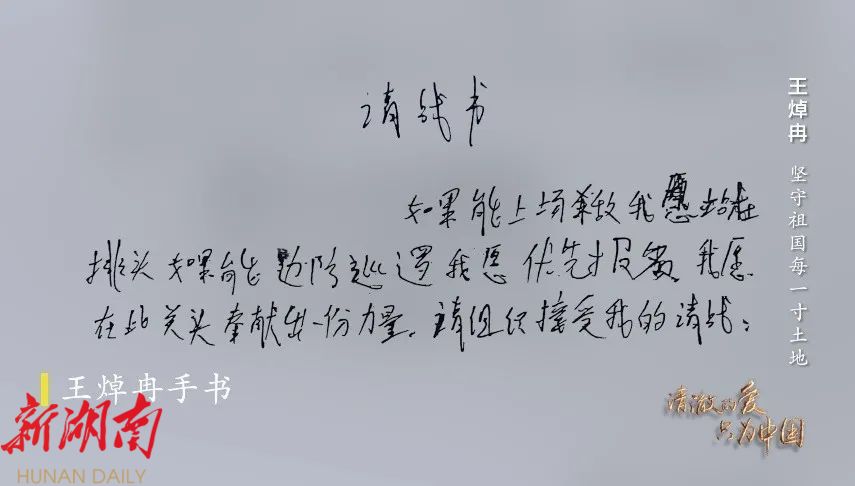 请战书
如果能上场杀敌我愿站在
排头如果能边防巡逻我愿优先报名。我愿
在此关头奉献出一份力量。请组织接受我的请战。
王焯冉 坚守祖国每一寸土地
王焯冉手书
新湖南
HUNAN DAILY
清澈的爱
只为中国